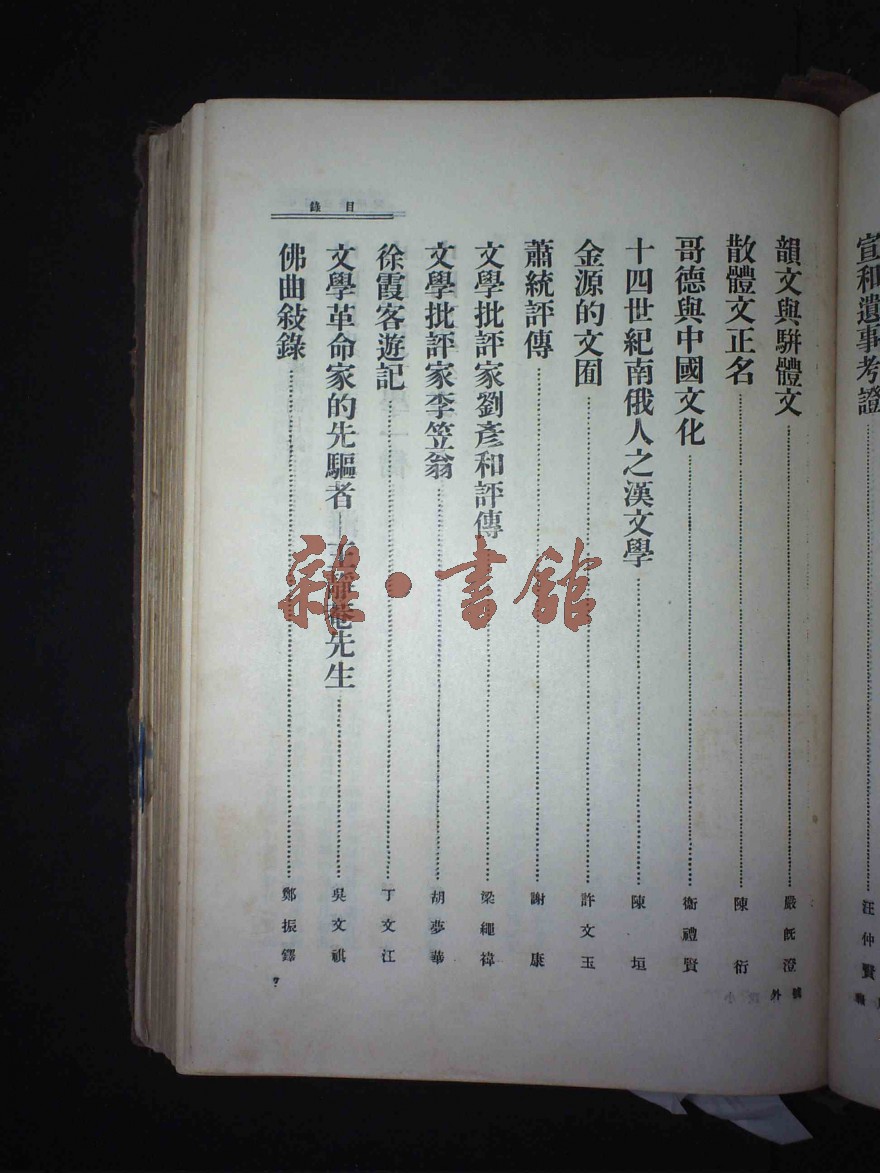 宣和遺事考證……汪仲賢
韻文與駢體文……嚴旣澄
散體文正名……陳衍
哥德與中國文化……衞禮賢
十四世紀南俄人之漢文學……陳垣
金源的文囿……許文玉
蕭統評傳……謝康
文學批評家劉彥和評傳……梁繩褘
文學批評家李笠翁……胡夢華
徐霞客遊記……丁文江
文學革命家的先驅者—王靜菴先生……吳文祺
佛曲敍錄……鄭振鐸
目錄
號外
7
雜·書館